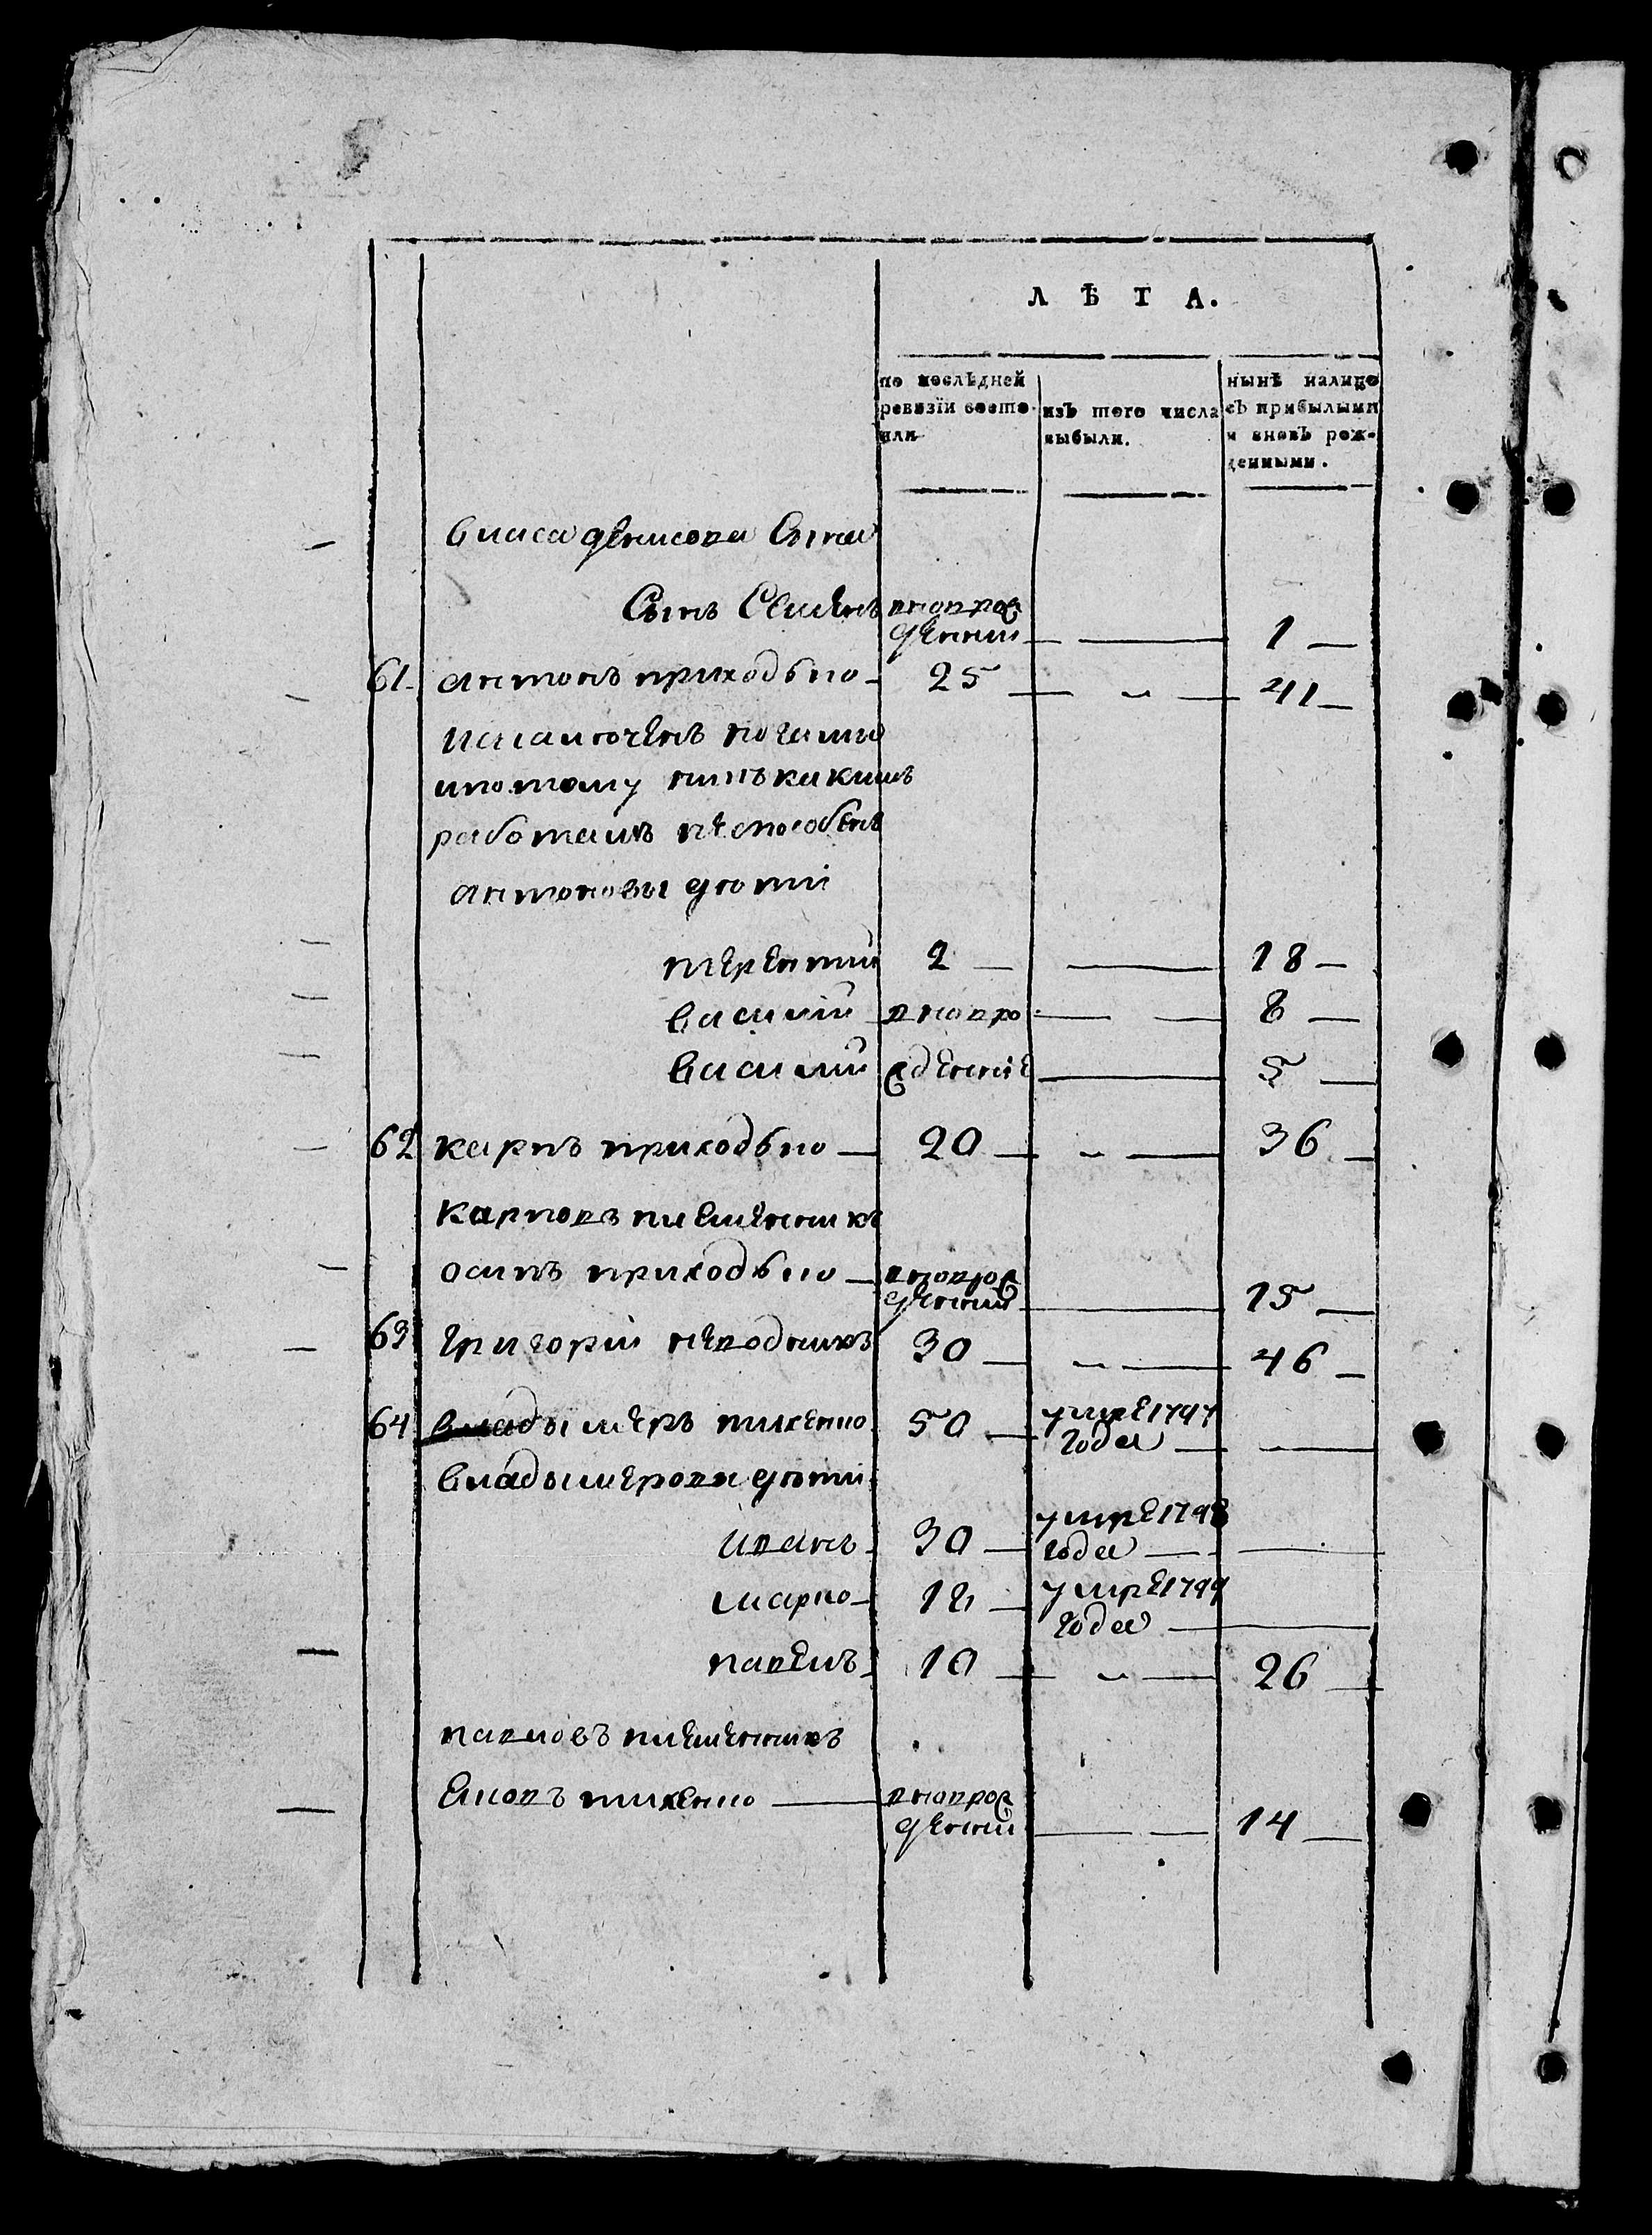 ЛѢТА.
по послѣдней ревизіи состояли
изъ того числа выбыли.
нынѣ налицо съ прибылыми и вновь рожденными.
Власа денисова Сына
Сынъ Семенъ вновърожденнии — 1
61 антонъ приходько 25 — 41
ногами
ипотому никъкакимъ
работамъ неспособенъ
антоновы дѣти
терентии 2 — 18
василии вновъро — 8
василии жденніе — 5
62 карпъ приходько 20 — 36
Карповъ племенникъ
осипъ приходько вновърожденнии — 15
63 григории неводникъ 30 — 46
64 владымеръ 50 умре 1797 года —
владымерови дѣти
иванъ 30 умре 1798 года —
марко 12 умре 1799 года —
павелъ 10 — 26
павловъ племенникъ
вновърожденнии — 14